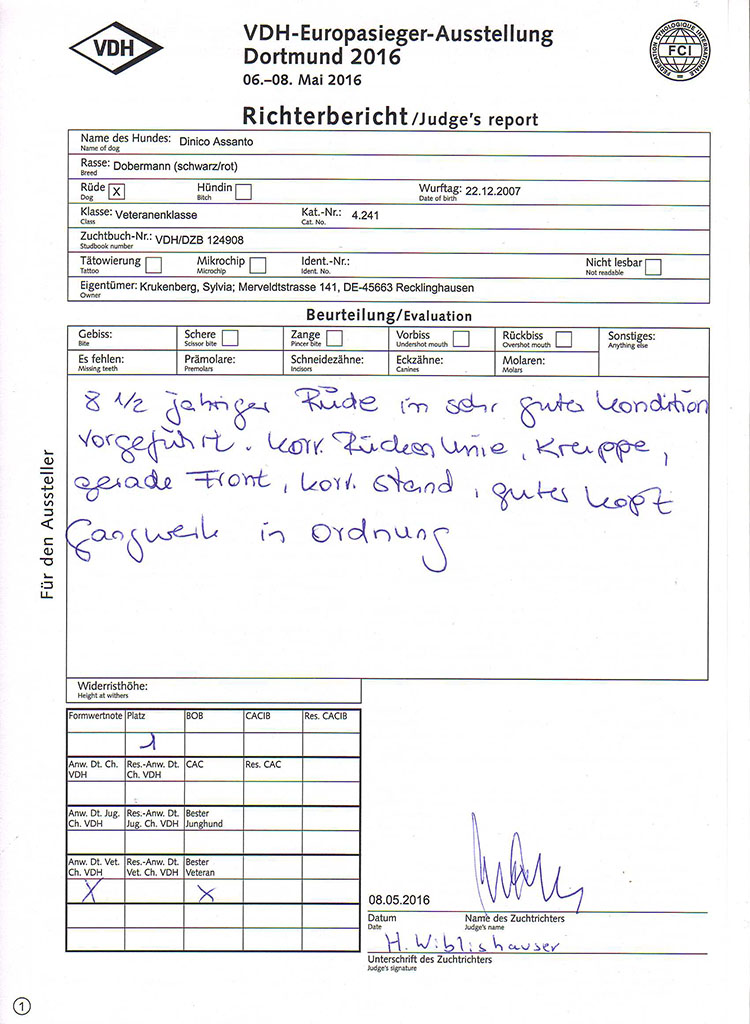 VDH
VDH-Europasieger-Ausstellung
Dortmund 2016
06.–08. Mai 2016
FEDERATION CYNOLOGIQUE INTERNATIONALE
FCI
Richterbericht /Judge's report
Name des Hundes: Dinico Assanto
Name of dog
Rasse: Dobermann (schwarz/rot)
Breed
Rüde X Hündin Wurftag: 22.12.2007
Dog Bitch Date of birth
Klasse: Veteranenklasse Kat.-Nr.: 4.241
Class Cat. No.
Zuchtbuch-Nr.: VDH/DZB 124908
Studbook number
Tätowierung Mikrochip Ident.-Nr.: Nicht lesbar
Tattoo Microchip Ident. No. Not readable
Eigentümer: Krukenberg, Sylvia; Merveldtstrasse 141, DE-45663 Recklinghausen
Owner
Beurteilung/Evaluation
Gebiss: Schere Zange Vorbiss Rückbiss Sonstiges:
Bite Scissor bite Pincer bite Undershot mouth Overshot mouth Anything else
Es fehlen: Prämolare: Schneidezähne: Eckzähne: Molaren:
Missing teeth Premolars Incisors Canines Molars
8 1/2 jähriger Rüde in sehr guter Kondition
vorgeführt. korr. Rückenlinie, Kruppe,
gerade Front, korr. Stand, guter Kopf
Gangwerk in Ordnung
Für den Aussteller
Widerristhöhe:
Height at withers
Formwertnote Platz BOB CACIB Res. CACIB
1
Anw. Dt. Ch. VDH Res.-Anw. Dt. Ch. VDH CAC Res. CAC
Anw. Dt. Jug. Ch. VDH Res.-Anw. Dt. Jug. Ch. VDH Bester Junghund
Anw. Dt. Vet. Ch. VDH Res.-Anw. Dt. Vet. Ch. VDH Bester Veteran
X X
08.05.2016
Datum Name des Zuchtrichters
Date Judge's name
H. Wiblishauser
Unterschrift des Zuchtrichters
Judge's signature
1